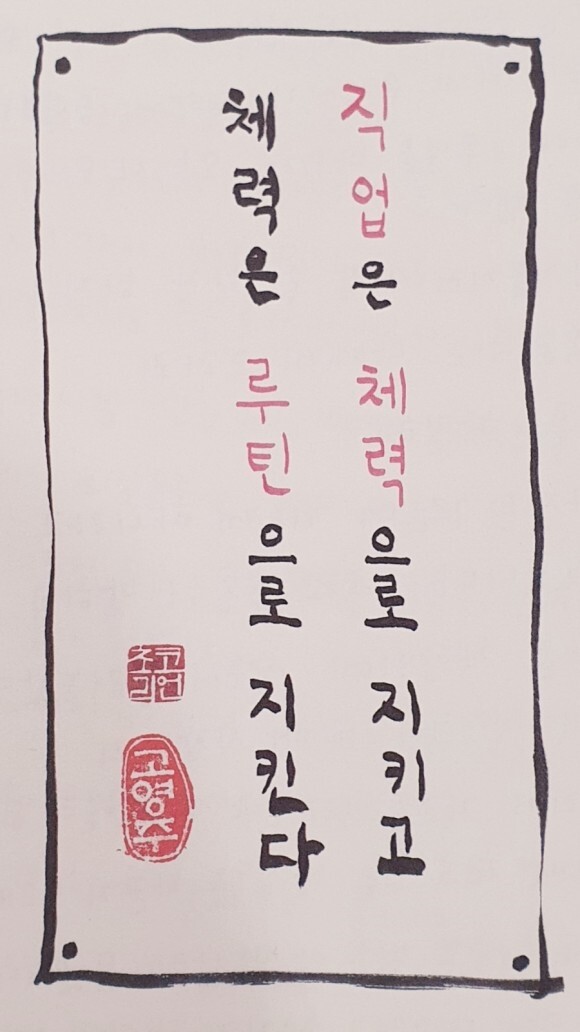 직업은 체력으로 지키고
체력은 루틴으로 지킨다
고영주